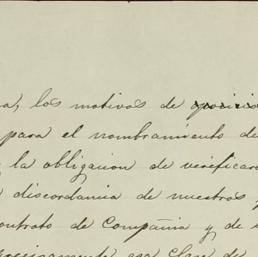 a, los motivos de oposicio
para el nombramiento de
la obligacion de verificar
discordancia de nuestros
contrato de Compañia y de
precisamente esa clase de